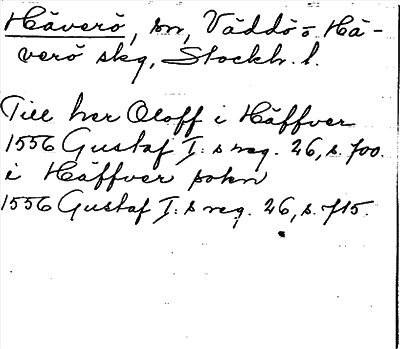 Häverö, sn, Väddö o Hä-
verö skg, Stockh. l.
Till her Oloff i Häffver
1556 Gustaf I:s reg. 26, s. 700.
i Häffver sokn
1556 Gustaf I:s reg. 26, s. 715.